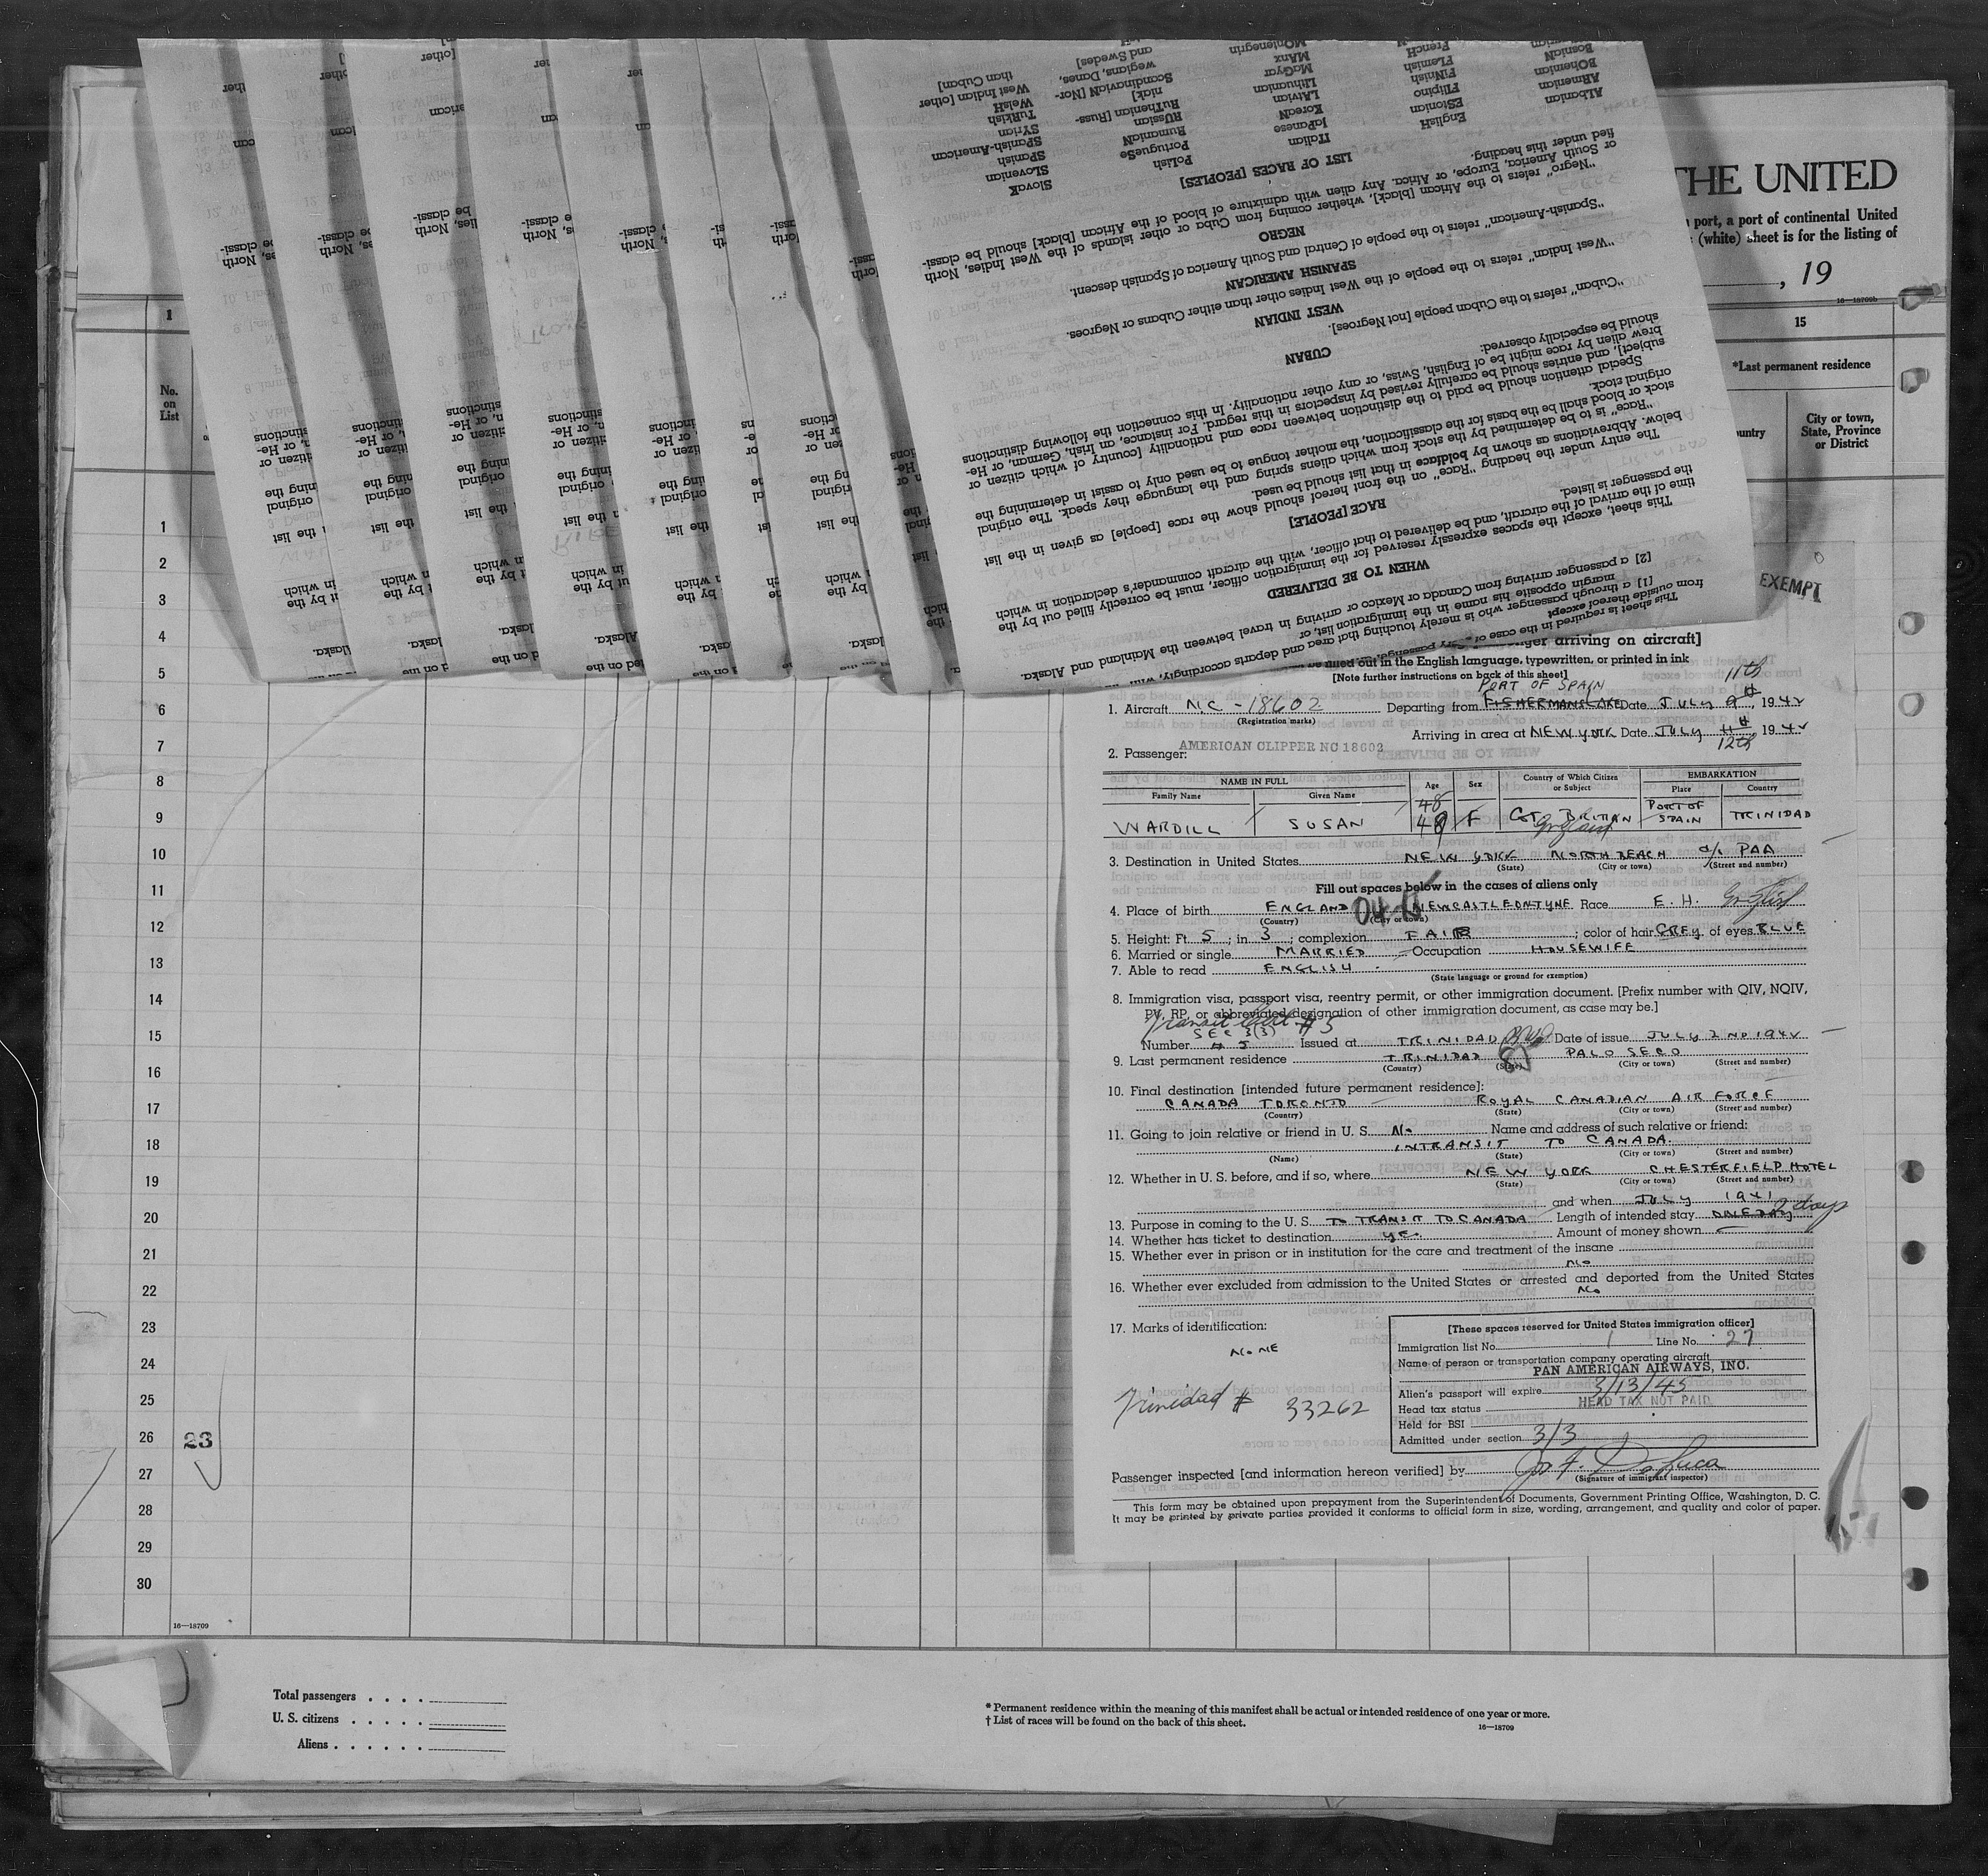 THE UNITED
port, a port of continental United
(white) sheet is for the listing of
, 19
16—18709b
1
15
No. on List
*Last permanent residence
City or town, State, Province or District
EXEMPT
This sheet is required in the case of every passenger
from outside thereof except
[1] a through passenger who is merely touching that area and departs accordingly,
margin opposite his name in the immigration list, or
[2] a passenger arriving from Canada or Mexico or arriving in travel between the Mainland and Alaska.
WHEN TO BE DELIVERED
This sheet, except the spaces expressly reserved for the immigration officer, must be correctly filled out by the
time of the arrival of the aircraft, and be delivered to that officer, with the aircraft commander's declaration in which
the passenger is listed.
RACE [PEOPLE]
The entry under the heading "Race" on the front hereof should show the race [people] as given in the list
below. Abbreviations as shown by boldface in that list should be used.
"Race" is to be determined by the stock from which aliens spring and the language they speak. The original
stock or blood shall be the basis for the classification, the mother tongue to be used only to assist in determining the
original stock.
Special attention should be paid to the distinction between race and nationality [country of which citizen or
subject], and entries should be carefully revised by inspectors in this regard. For instance, an Irish, German, or He-
brew alien by race might be of English, Swiss, or any other nationality. In this connection the following distinctions
should be especially observed:
CUBAN
"Cuban" refers to the Cuban people [not Negroes].
WEST INDIAN
"West Indian" refers to the people of the West Indies other than either Cubans or Negroes.
SPANISH AMERICAN
"Spanish-American" refers to the people of Central and South America of Spanish descent.
NEGRO
"Negro" refers to the African [black], whether coming from Cuba or other islands of the West Indies, North
or South America, Europe, or Africa. Any alien with admixture of blood of the African [black] should be classi-
fied under this heading.
LIST OF RACES [PEOPLES]
Albanian
ARmenian
BOhemian
BOsnian
EnglisH
EStonian
FIlipino
FINnish
FLemish
FrencH
ITalian
JaPanese
KoreaN
LAtvian
Lithuanian
MaGyar
MAnx
MOntenegrin
PoLish
PortugueSe
RumaniaN
RUssian
RuThenian [Russ-
niak]
ScandinaviaN [Nor-
wegians, Danes,
and Swedes]
SlovaK
SLovenian
SPanish
SPanish-American
SYrian
TuRkish
WelsH
West Indian [other
than Cuban]
arriving on aircraft]
filled out in the English language, typewritten, or printed in ink
[Note further instructions on back of this sheet]
PORT OF SPAIN 11th
1. Aircraft NC-18602 Departing from FISHERMANSLAKE Date JULY 9th, 1942
(Registration marks)
Arriving in area at NEW YORK Date JULY 11th 1942
12th
AMERICAN CLIPPER NC 18602
2. Passenger:
NAME IN FULL Age Sex Country of Which Citizen or Subject EMBARKATION
Family Name Given Name Place Country
48
WARDILL SUSAN 48 F GT. BRITIAN PORT OF SPAIN TRINIDAD
England
3. Destination in United States NEW YORK NORTH BEACH c/o PAA
(State) (City or town) (Street and number)
Fill out spaces below in the cases of aliens only
4. Place of birth ENGLAND NEWCASTLEONTYNE Race E. H. English
(Country) (City or town)
5. Height: Ft. 5; in 3; complexion FAIR; color of hair GREY of eyes BLUE
6. Married or single MARRIED Occupation HOUSEWIFE
7. Able to read ENGLISH
(State language or ground for exemption)
8. Immigration visa, passport visa, reentry permit, or other immigration document. [Prefix number with QIV, NQIV,
PV, RP, or abbreviated designation of other immigration document, as case may be.]
Transit Cert #5
SEC 3(3)
Number # 5 Issued at TRINIDAD BWI Date of issue JULY 2ND 1942
9. Last permanent residence TRINIDAD PALO SECO
(Country) (State) (City or town) (Street and number)
10. Final destination [intended future permanent residence]:
CANADA TORONTO ROYAL CANADIAN AIR FORCE
(Country) (State) (City or town) (Street and number)
11. Going to join relative or friend in U. S. No Name and address of such relative or friend:
INTRANSIT TO CANADA.
(Name) (State) (City or town) (Street and number)
12. Whether in U. S. before, and if so, where NEW YORK CHESTERFIELD HOTEL
(State) (City or town) (Street and number)
and when JULY 1941
13. Purpose in coming to the U. S. TO TRANSIT TO CANADA Length of intended stay ONE DAY 2 days
14. Whether has ticket to destination yes Amount of money shown —
15. Whether ever in prison or in institution for the care and treatment of the insane
No
16. Whether ever excluded from admission to the United States or arrested and deported from the United States
No
17. Marks of identification:
NONE
Trinidad # 33262
[These spaces reserved for United States immigration officer]
Immigration list No. 1 Line No. 27
Name of person or transportation company operating aircraft
PAN AMERICAN AIRWAYS, INC.
Alien's passport will expire 3/13/45
Head tax status HEAD TAX NOT PAID
Held for BSI
Admitted under section 3/3
Passenger inspected [and information hereon verified] by Jo F. DeLuca
(Signature of immigrant inspector)
This form may be obtained upon prepayment from the Superintendent of Documents, Government Printing Office, Washington, D. C.
It may be printed by private parties provided it conforms to official form in size, wording, arrangement, and quality and color of paper.
1
2
3
4
5
6
7
8
9
10
11
12
13
14
15
16
17
18
19
20
21
22
23
24
25
26 23
27
28
29
30
16—18709
Total passengers
U. S. citizens
Aliens
* Permanent residence within the meaning of this manifest shall be actual or intended residence of one year or more.
† List of races will be found on the back of this sheet.
16—18709